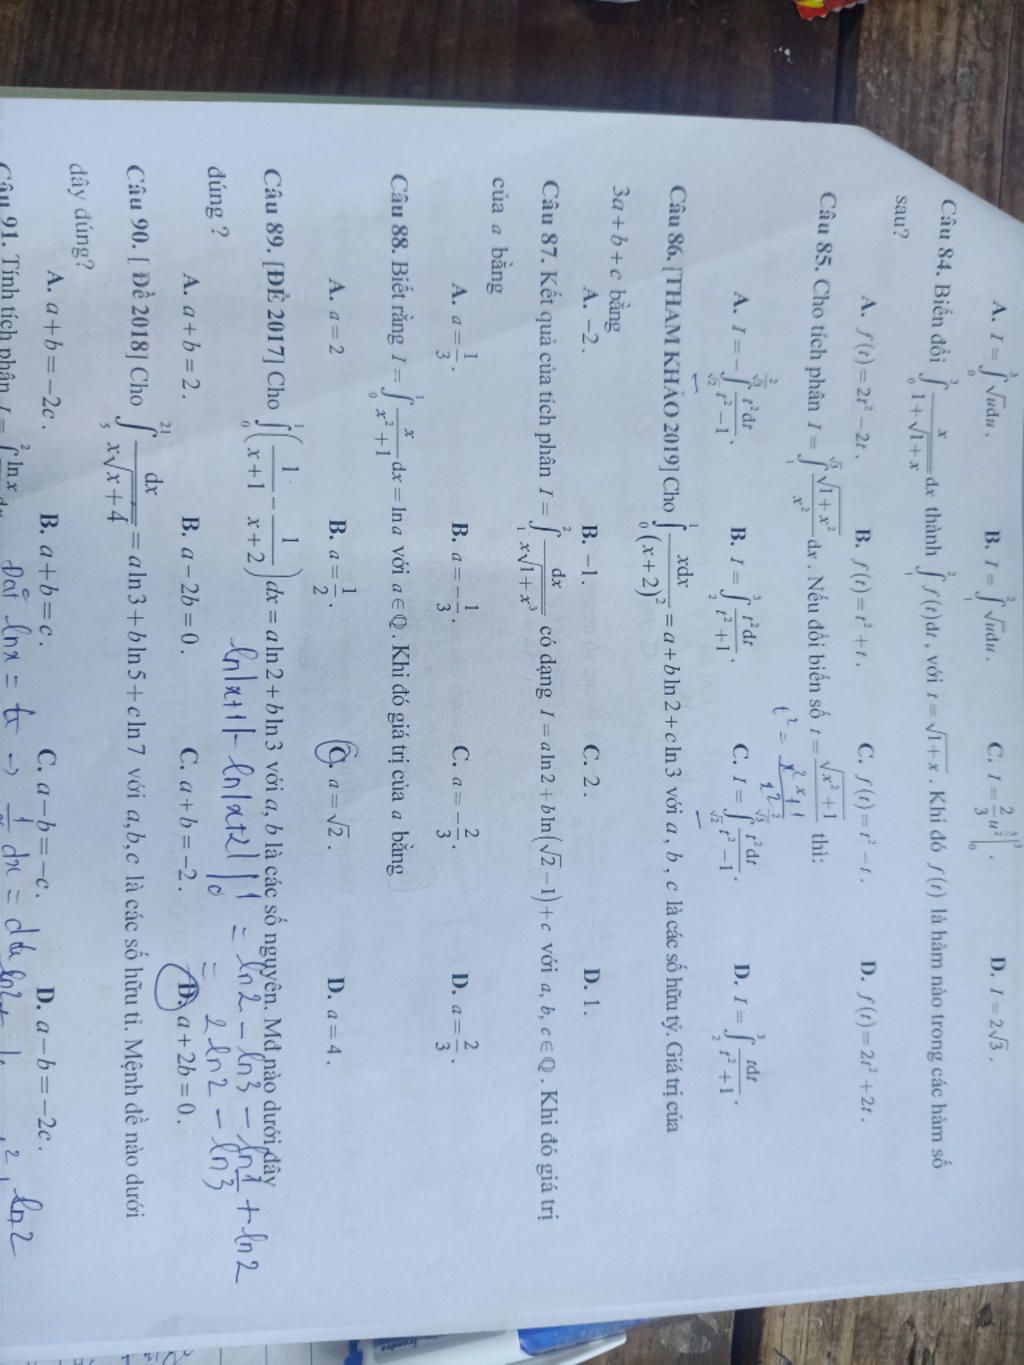 A. I = ∫₀³ √u du. B. I = ∫₁² √u du. C. I = 2/3 u^(3/2) |₀³. D. I = 2√3.
Câu 84. Biến đổi ∫₀³ x/(1+√(1+x)) dx thành ∫₁² f(t)dt, với t = √(1+x). Khi đó f(t) là hàm nào trong các hàm số
sau?
A. f(t) = 2t² − 2t. B. f(t) = t² + t. C. f(t) = t² − t. D. f(t) = 2t² + 2t.
Câu 85. Cho tích phân I = ∫₁^√3 √(1+x²)/x² dx. Nếu đổi biến số t = √(x²+1)/x thì:
t² = x²+1
A. I = −∫_√2^(2/√3) t²dt/(t²−1). B. I = ∫₂³ t²dt/(t²+1). C. I = ∫_√2^(2/√3) t²dt/(t²−1). D. I = ∫₂³ tdt/(t²+1).
Câu 86. [THAM KHẢO 2019] Cho ∫₀¹ xdx/(x+2)² = a + b ln 2 + c ln 3 với a, b, c là các số hữu tỷ. Giá trị của
3a + b + c bằng
A. −2. B. −1. C. 2. D. 1.
Câu 87. Kết quả của tích phân I = ∫₁² dx/(x√(1+x³)) có dạng I = a ln 2 + b ln(√2 − 1) + c với a, b, c ∈ ℚ. Khi đó giá trị
của a bằng
A. a = 1/3. B. a = −1/3. C. a = −2/3. D. a = 2/3.
Câu 88. Biết rằng I = ∫₀¹ x/(x²+1) dx = ln a với a ∈ ℚ. Khi đó giá trị của a bằng
A. a = 2 B. a = 1/2. C. a = √2. D. a = 4.
Câu 89. [ĐỀ 2017] Cho ∫₀¹ (1/(x+1) − 1/(x+2)) dx = a ln 2 + b ln 3 với a, b là các số nguyên. Mđ nào dưới đây
đúng ?
ln|x+1| − ln|x+2| |₀¹ = ln2 − ln3 − ln1 + ln2
= 2ln2 − ln3
A. a + b = 2. B. a − 2b = 0. C. a + b = −2. D. a + 2b = 0.
Câu 90. [ Đề 2018] Cho ∫₅²¹ dx/(x√(x+4)) = a ln 3 + b ln 5 + c ln 7 với a, b, c là các số hữu tỉ. Mệnh đề nào dưới
đây đúng?
A. a + b = −2c. B. a + b = c. C. a − b = −c. D. a − b = −2c.
Câu 91. Tính tích phân I = ∫ ln x
Đặt lnx =